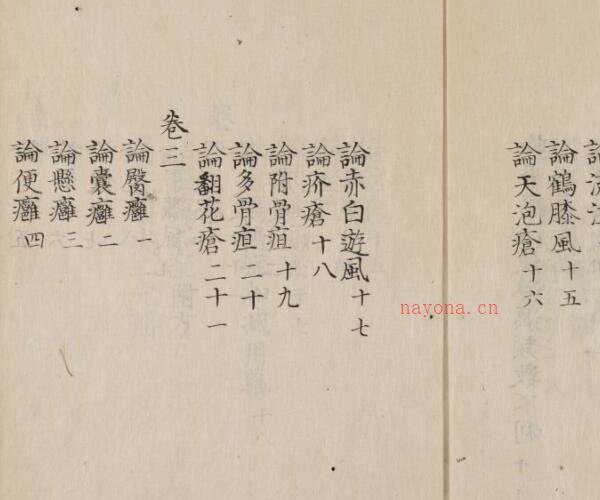 論鶴膝風十五
論天泡瘡十六
論赤白遊風十七
論疥瘡十八
論附骨疽十九
論多骨疽二十
論翻花瘡二十一
卷三
論臀癰一
論囊癰二
論懸癰三
論便癰四
nayona.cn